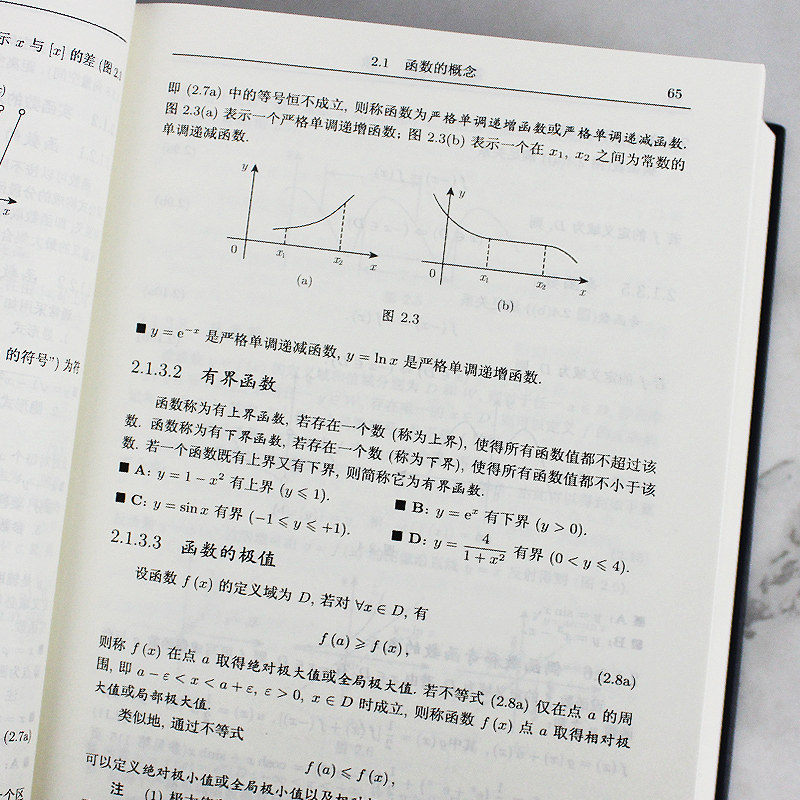 示 x 与 [x] 的差 (图 2.
x
的符号") 为符
(2.7a)
一个区
2.1 函数的概念 65
即 (2.7a) 中的等号恒不成立, 则称函数为严格单调递增函数或严格单调递减函数.
图 2.3(a) 表示一个严格单调递增函数; 图 2.3(b) 表示一个在 x₁, x₂ 之间为常数的
单调递减函数.
y
0 x₁ x₂ x
(a)
y
0 x₁ x₂ x
(b)
图 2.3
■ y = e⁻ˣ 是严格单调递减函数, y = ln x 是严格单调递增函数.
2.1.3.2 有界函数
函数称为有上界函数, 若存在一个数 (称为上界), 使得所有函数值都不超过该
数. 函数称为有下界函数, 若存在一个数 (称为下界), 使得所有函数值都不小于该
数. 若一个函数既有上界又有下界, 则简称它为有界函数.
■ A: y = 1 − x² 有上界 (y ⩽ 1).
■ B: y = eˣ 有下界 (y > 0).
■ C: y = sin x 有界 (−1 ⩽ y ⩽ +1).
■ D: y = 4/(1 + x²) 有界 (0 < y ⩽ 4).
2.1.3.3 函数的极值
设函数 f (x) 的定义域为 D, 若对 ∀x ∈ D, 有
f (a) ⩾ f (x), (2.8a)
则称 f (x) 在点 a 取得绝对极大值或全局极大值. 若不等式 (2.8a) 仅在点 a 的周
围, 即 a − ε < x < a + ε, ε > 0, x ∈ D 时成立, 则称函数 f (x) 点 a 取得相对极
大值或局部极大值.
类似地, 通过不等式
f (a) ⩽ f (x),
可以定义绝对极小值或全局极小值以及相对
注 (1) 极大值